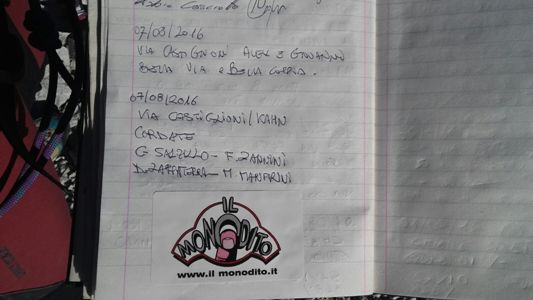 07/08/2016
VIA CASTIGLIONI ALEX E GIOVANNI
BELLA VIA E BELLA COPPIA.
07/08/2016
VIA CASTIGLIONI/KAHN
CORDATE
G. SALZILLO - F. ZANNINI
D. ZAPATTERRA - M. MANFRINI
IL
MONODITO
www.il monodito.it